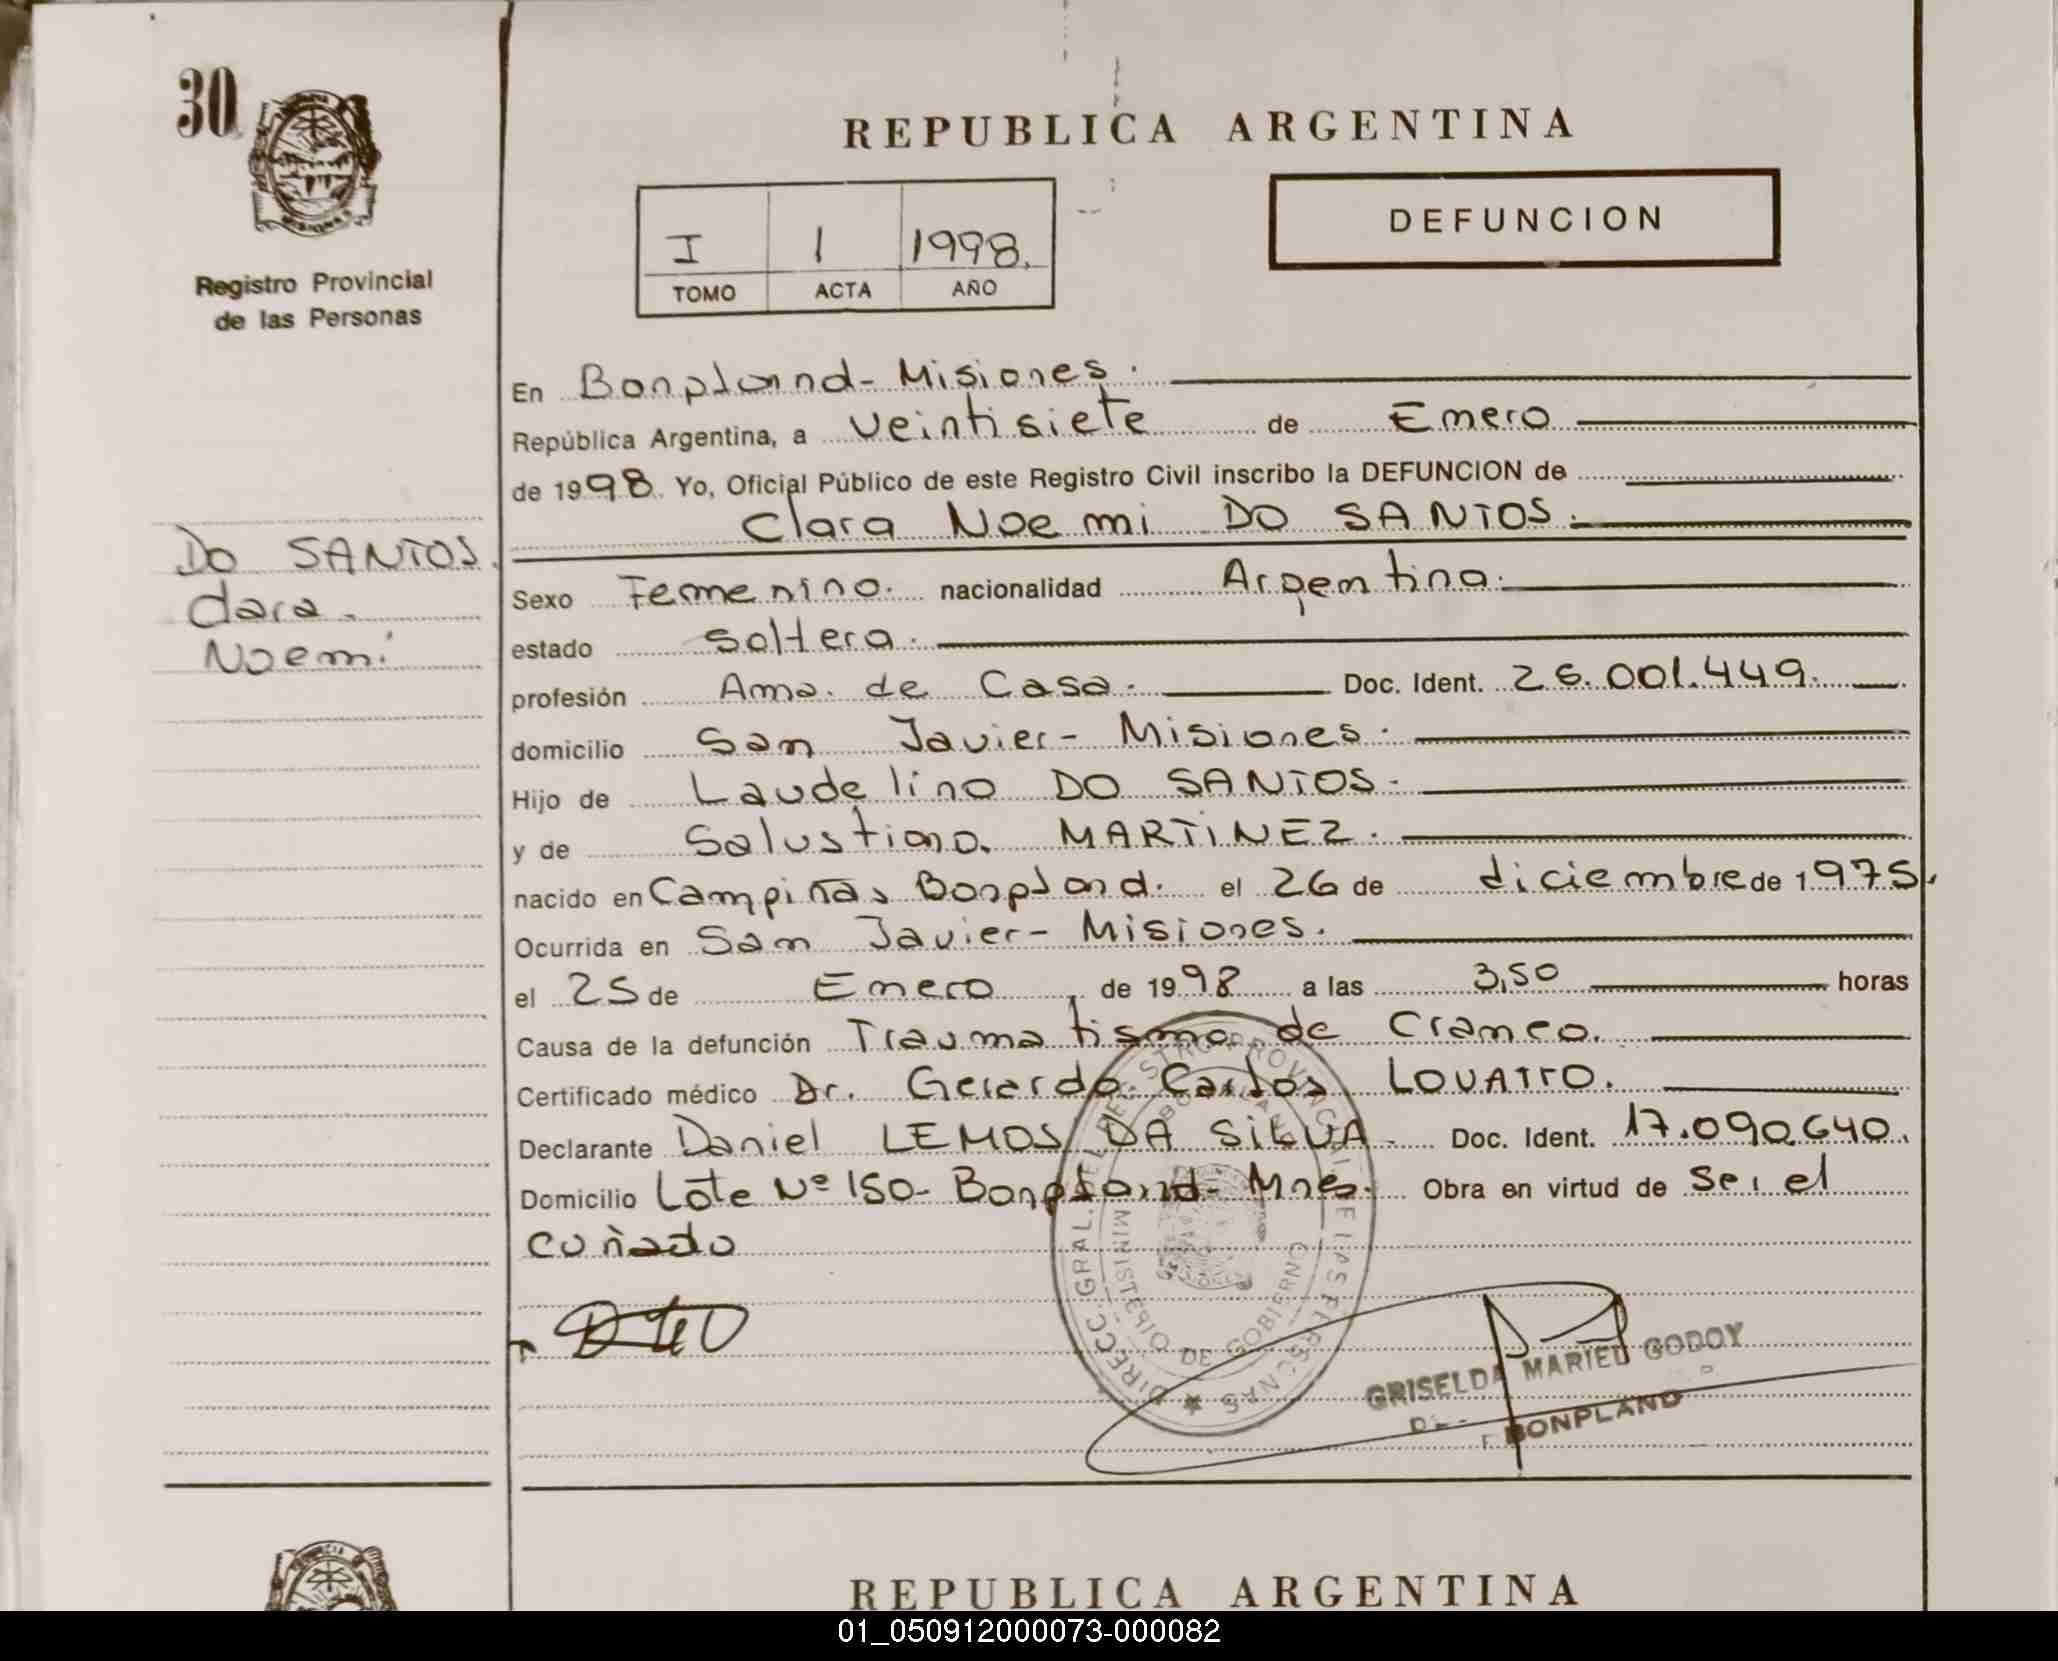 30
REPUBLICA ARGENTINA
Registro Provincial
de las Personas
I 1 1998.
TOMO ACTA AÑO
DEFUNCION
DO SANTOS.
Clara.
Noemi
En Bonpland - Misiones.
República Argentina, a veintisiete de Enero
de 1998. Yo, Oficial Público de este Registro Civil inscribo la DEFUNCION de
Clara Noemi DO SANTOS.
Sexo Femenino. nacionalidad Argentina.
estado soltera.
profesión Ama de Casa. Doc. Ident. 26.001.449.
domicilio San Javier - Misiones.
Hijo de Laudelino DO SANTOS.
y de Salustiana MARTINEZ.
nacido en Campiñas Bonpland. el 26 de diciembre de 1975.
Ocurrida en San Javier - Misiones.
el 25 de Enero de 1998 a las 3,50 horas
Causa de la defunción Traumatismo de Craneo.
Certificado médico Dr. Gerardo Carlos LOVATTO.
Declarante Daniel LEMOS DA SILVA. Doc. Ident. 17.090.640.
Domicilio Lote Nº 150 - Bonpland - Mnes. Obra en virtud de Ser el
cuñado
DIRECC. GRAL. DEL REGISTRO PROVINCIAL DE LAS PERSONAS
MINISTERIO DE GOBIERNO
BONPLAND
GRISELDA MARIEL GODOY
BONPLAND
REPUBLICA ARGENTINA
01_050912000073-000082